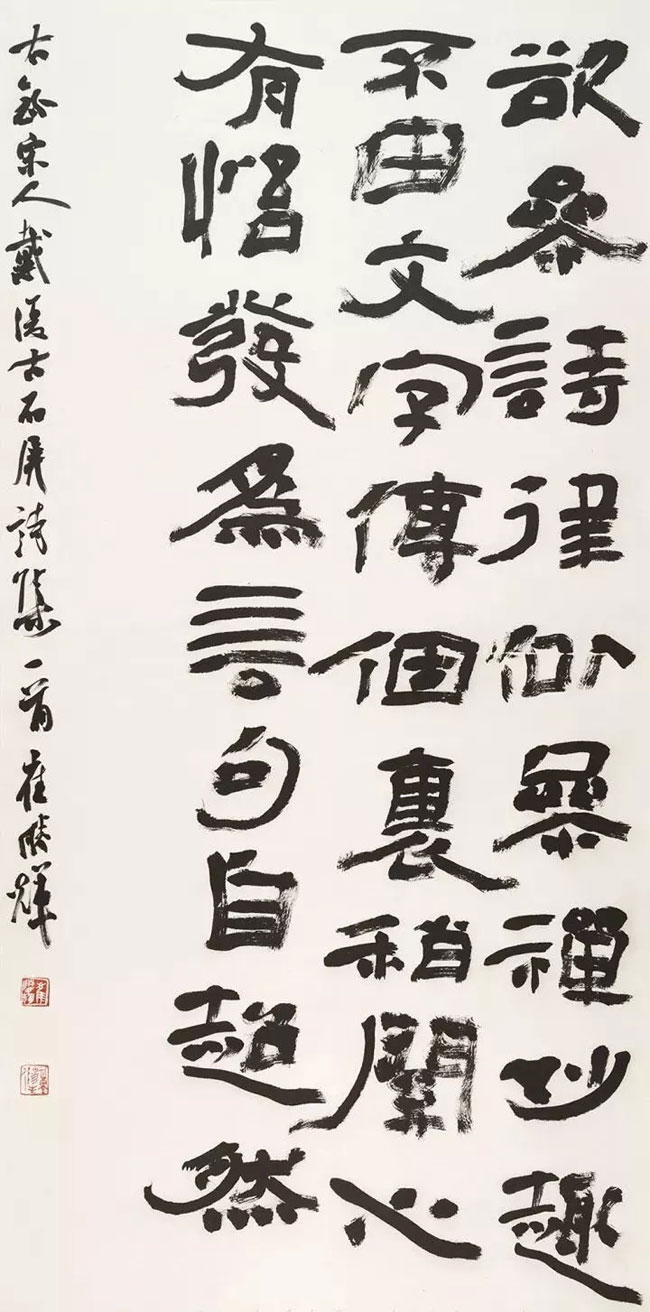 欲參詩律似參禪妙趣
不由文字傳個裏稍關心
有悟發爲言句自超然
右錄宋人戴復古石屏詩集一首崔勝輝